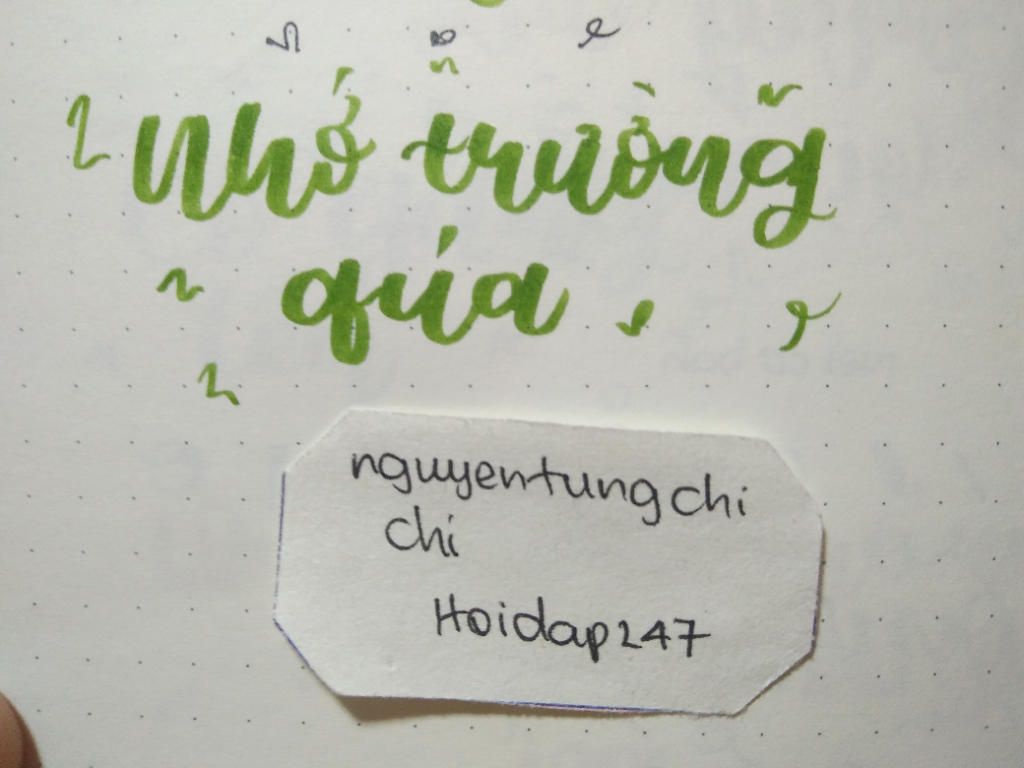 Nhớ trường
quá
nguyentungchi
chi
Hoidap247